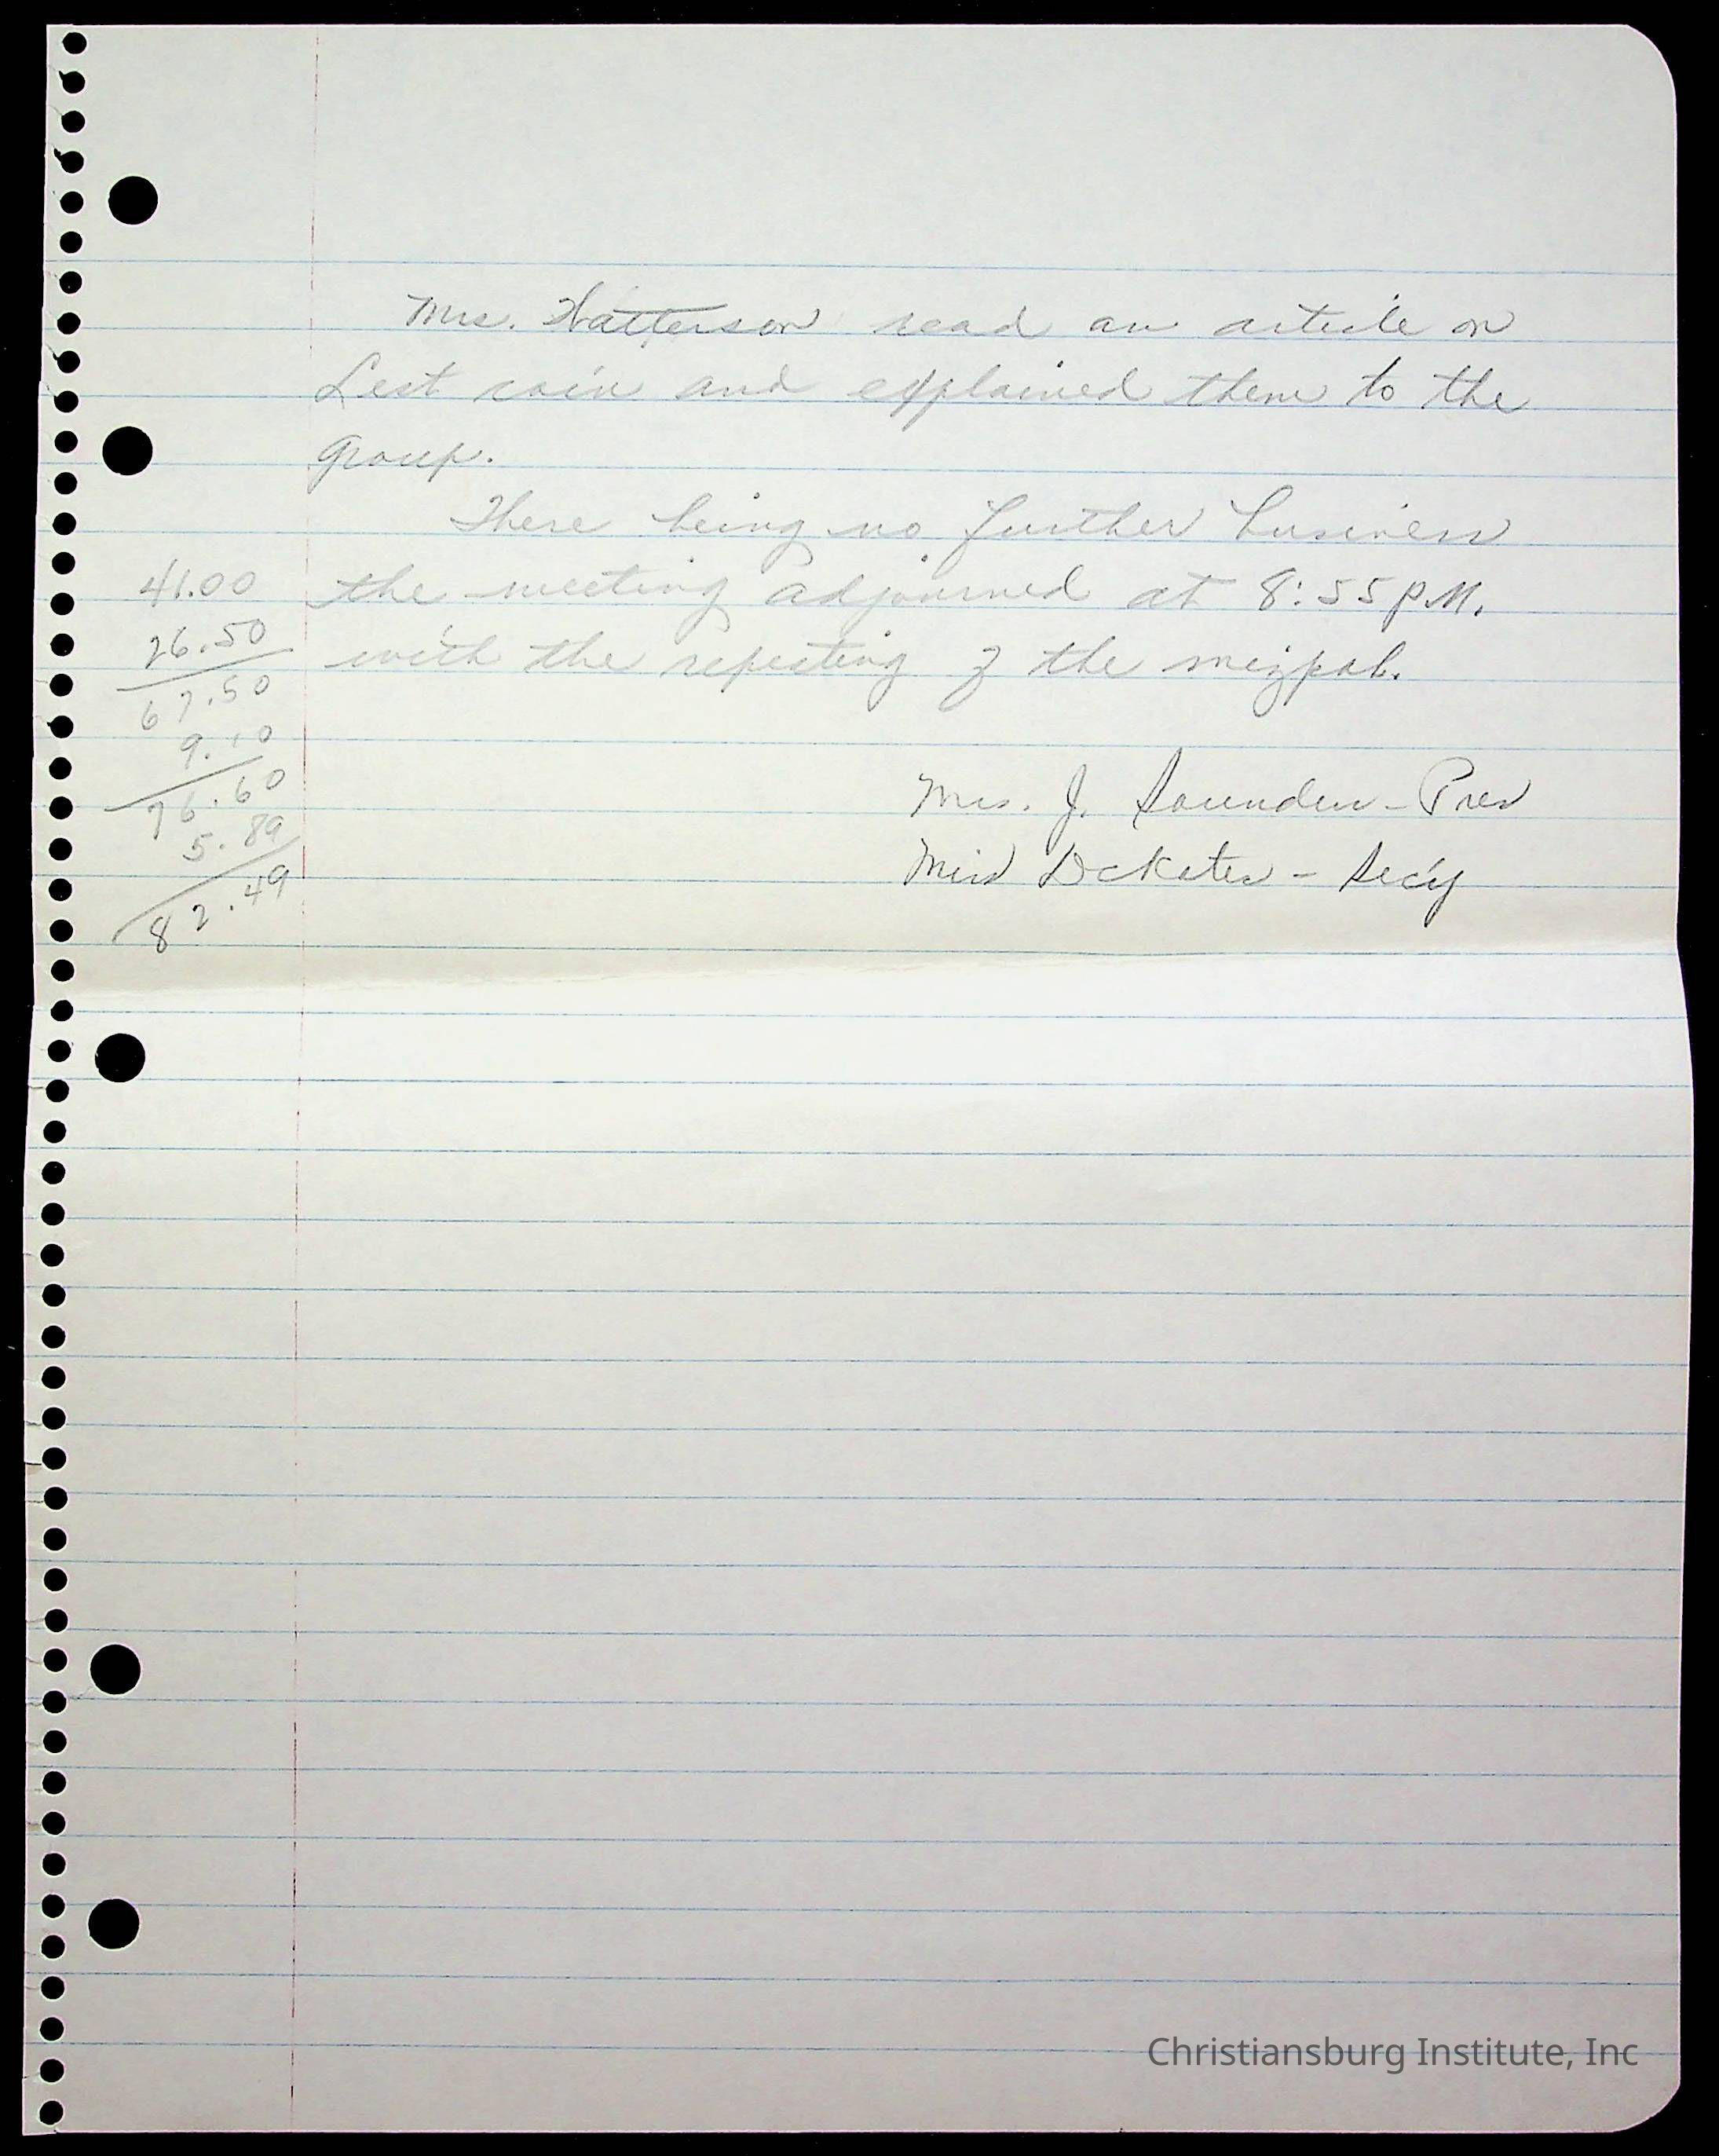 Mrs. Watterson read an article on
Lest coin and explained them to the
group.
There being no further business
the meeting adjourned at 8:55 P.M.
with the repeating of the mizpah.
Mrs. J. Saunders - Pres
Miss - Sec'y
41.00
26.50
67.50
9.10
76.60
5.89
82.49
Christiansburg Institute, Inc